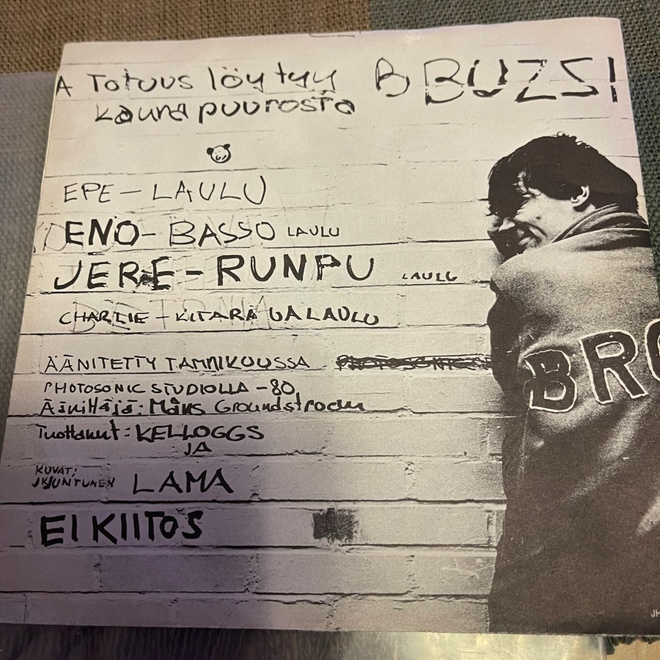 A Totuus löytyy
kaurapuurosta
B BUZSI
EPE - LAULU
ENO - BASSO LAULU
JERE - RUNPU LAULU
CHARLIE - KITARA JA LAULU
ÄÄNITETTY TAMMIKUUSSA
PHOTOSONIC STUDIOLLA -80
Äänittäjä: Måns Groundstroom
Tuottanut: KELLOGGS
JA
LAMA
KUVAT:
EI KIITOS
BRO
JH